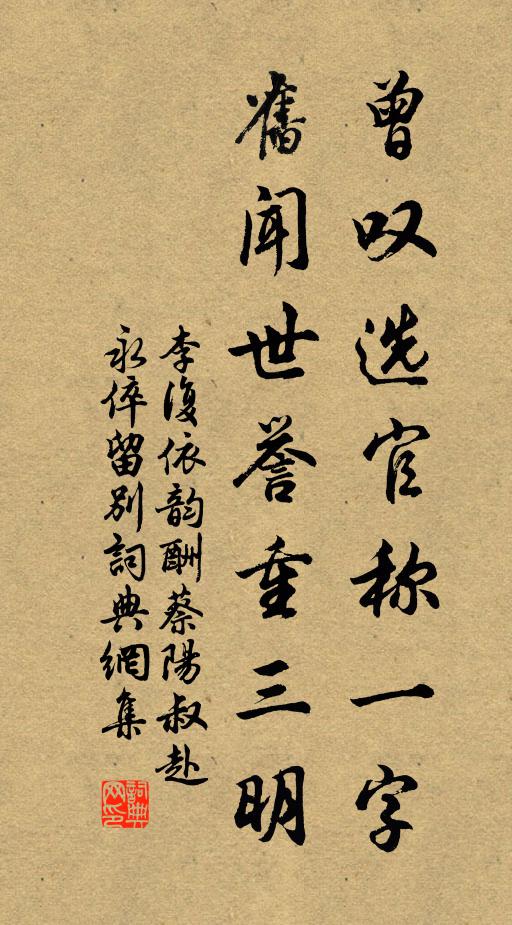 曾叹选官称一字
旧闻世誉重三明
李復依韵酬蔡陽叔赴
永倅留别詞典網集
詞典网印